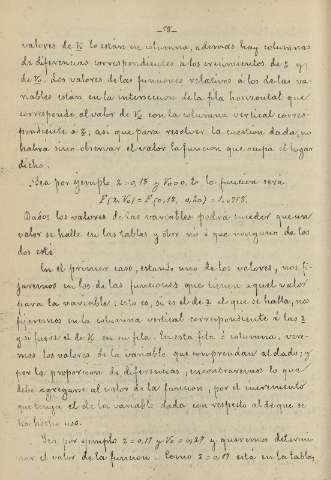 —58—
valores de V₀ lo están en columna, además hay columnas
de diferencias correspondientes á los crecimientos de z y
de V₀. Los valores de las funciones relativos á los de las va-
riables están en la intersección de la fila horizontal que
corresponde al valor de V₀ con la columna vertical corres-
pondiente á z; así que para resolver la cuestión dada, no
habrá sino observar el valor la función que ocupa el lugar
dicho.
Sea por ejemplo z = 0,18 y V₀ = 0, la función será
F(z, V₀) = F(0,18,
Dados los valores de las variables podrá suceder que un
valor se halle en las tablas y otro no ó que ninguno de los
dos esté
En el primer caso, estando uno de los valores, nos fi-
jaremos en los de las funciones que tienen aquel valor
para la variable; esto es, si es el de z el que se halla, nos
fijaremos en la columna vertical correspondiente á las z
y si fuese el de V₀ en su fila. En esta fila ó columna, vere-
mos los valores de la variable que comprendan al dado; y
por la proporción de diferencias, encontraremos lo que
debe agregarse al valor de la función, por el incremento
que tenga el de la variable dada con respecto al de que se
ha hecho uso.
Sea por ejemplo z = 0,17 y V₀ = y queremos determi-
nar el valor de la función. Como z = 0,17 está en la tabla,